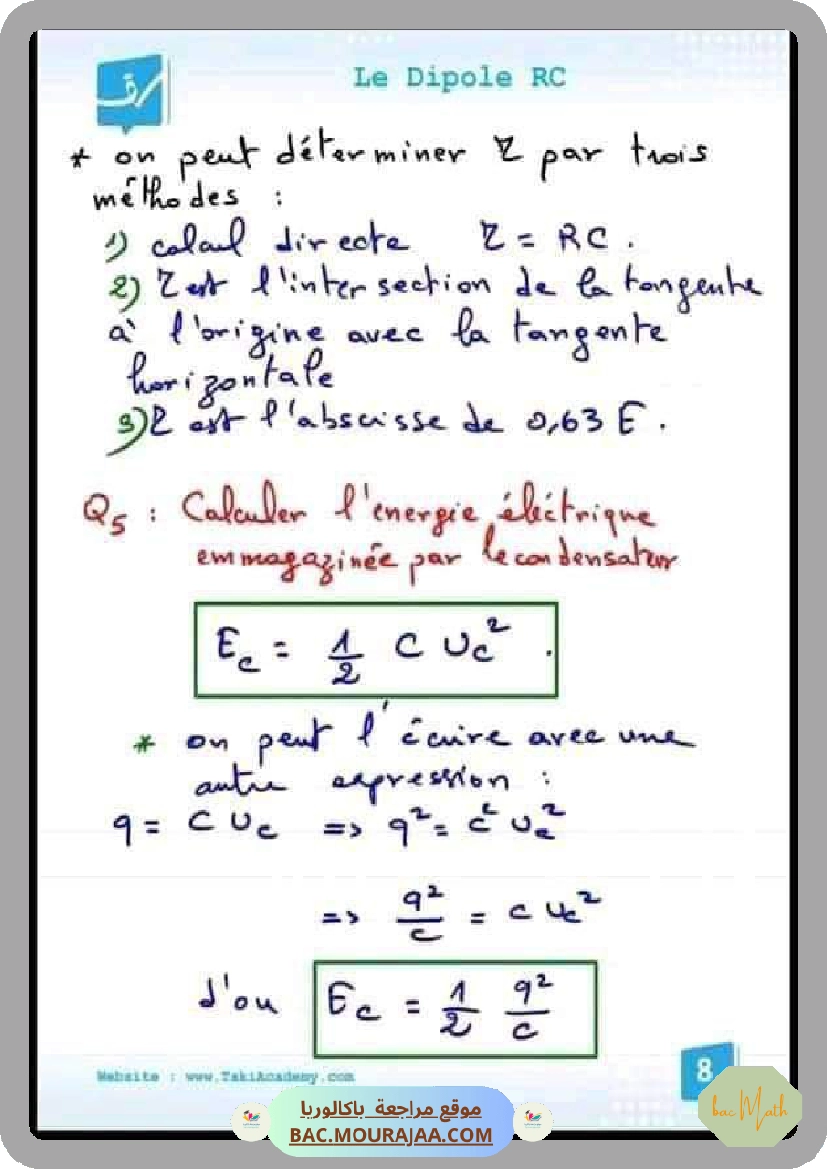 Le Dipole RC
* on peut déterminer τ par trois
méthodes :
1) calcul directe τ = RC .
2) τ est l'intersection de la tangente
à l'origine avec la tangente
horizontale
3) τ est l'abscisse de 0,63 E .
Q5 : Calculer l'energie éléctrique
emmagazinée par le condensateur
Ec = 1/2 C Uc² .
* on peut l'écrire avec une
autre expression :
q = C Uc => q² = c² Uc²
=> q²/c = c Uc²
d'ou Ec = 1/2 q²/c
Website : www.TakiAcademy.com
8
bac Math
موقع مراجعة باكالوريا
BAC.MOURAJAA.COM